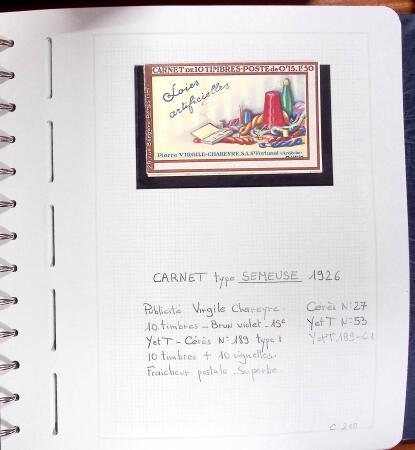 CARNET DE 10 TIMBRES-POSTE de 0f15. 1f50
Soies
artificielles
Pierre VIRGILE-CHAREYRE, S.A. St Fortunat (Ardèche)
CARNET type SEMEUSE 1926
Publicité Virgile Chareyre. Cérès N°27
10 timbres - Brun violet - 15c YetT N°53
YetT - Cérès N°189 type 1 YetT 189-C1
10 timbres + 10 vignettes.
Fraicheur postale. Superbe